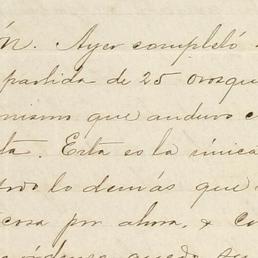 n. Ayer completó
partida de 25 oros que
mismo que anduvo
ta. Esta es la única
todo lo demás que
cosa por ahora, & Co
quedo su